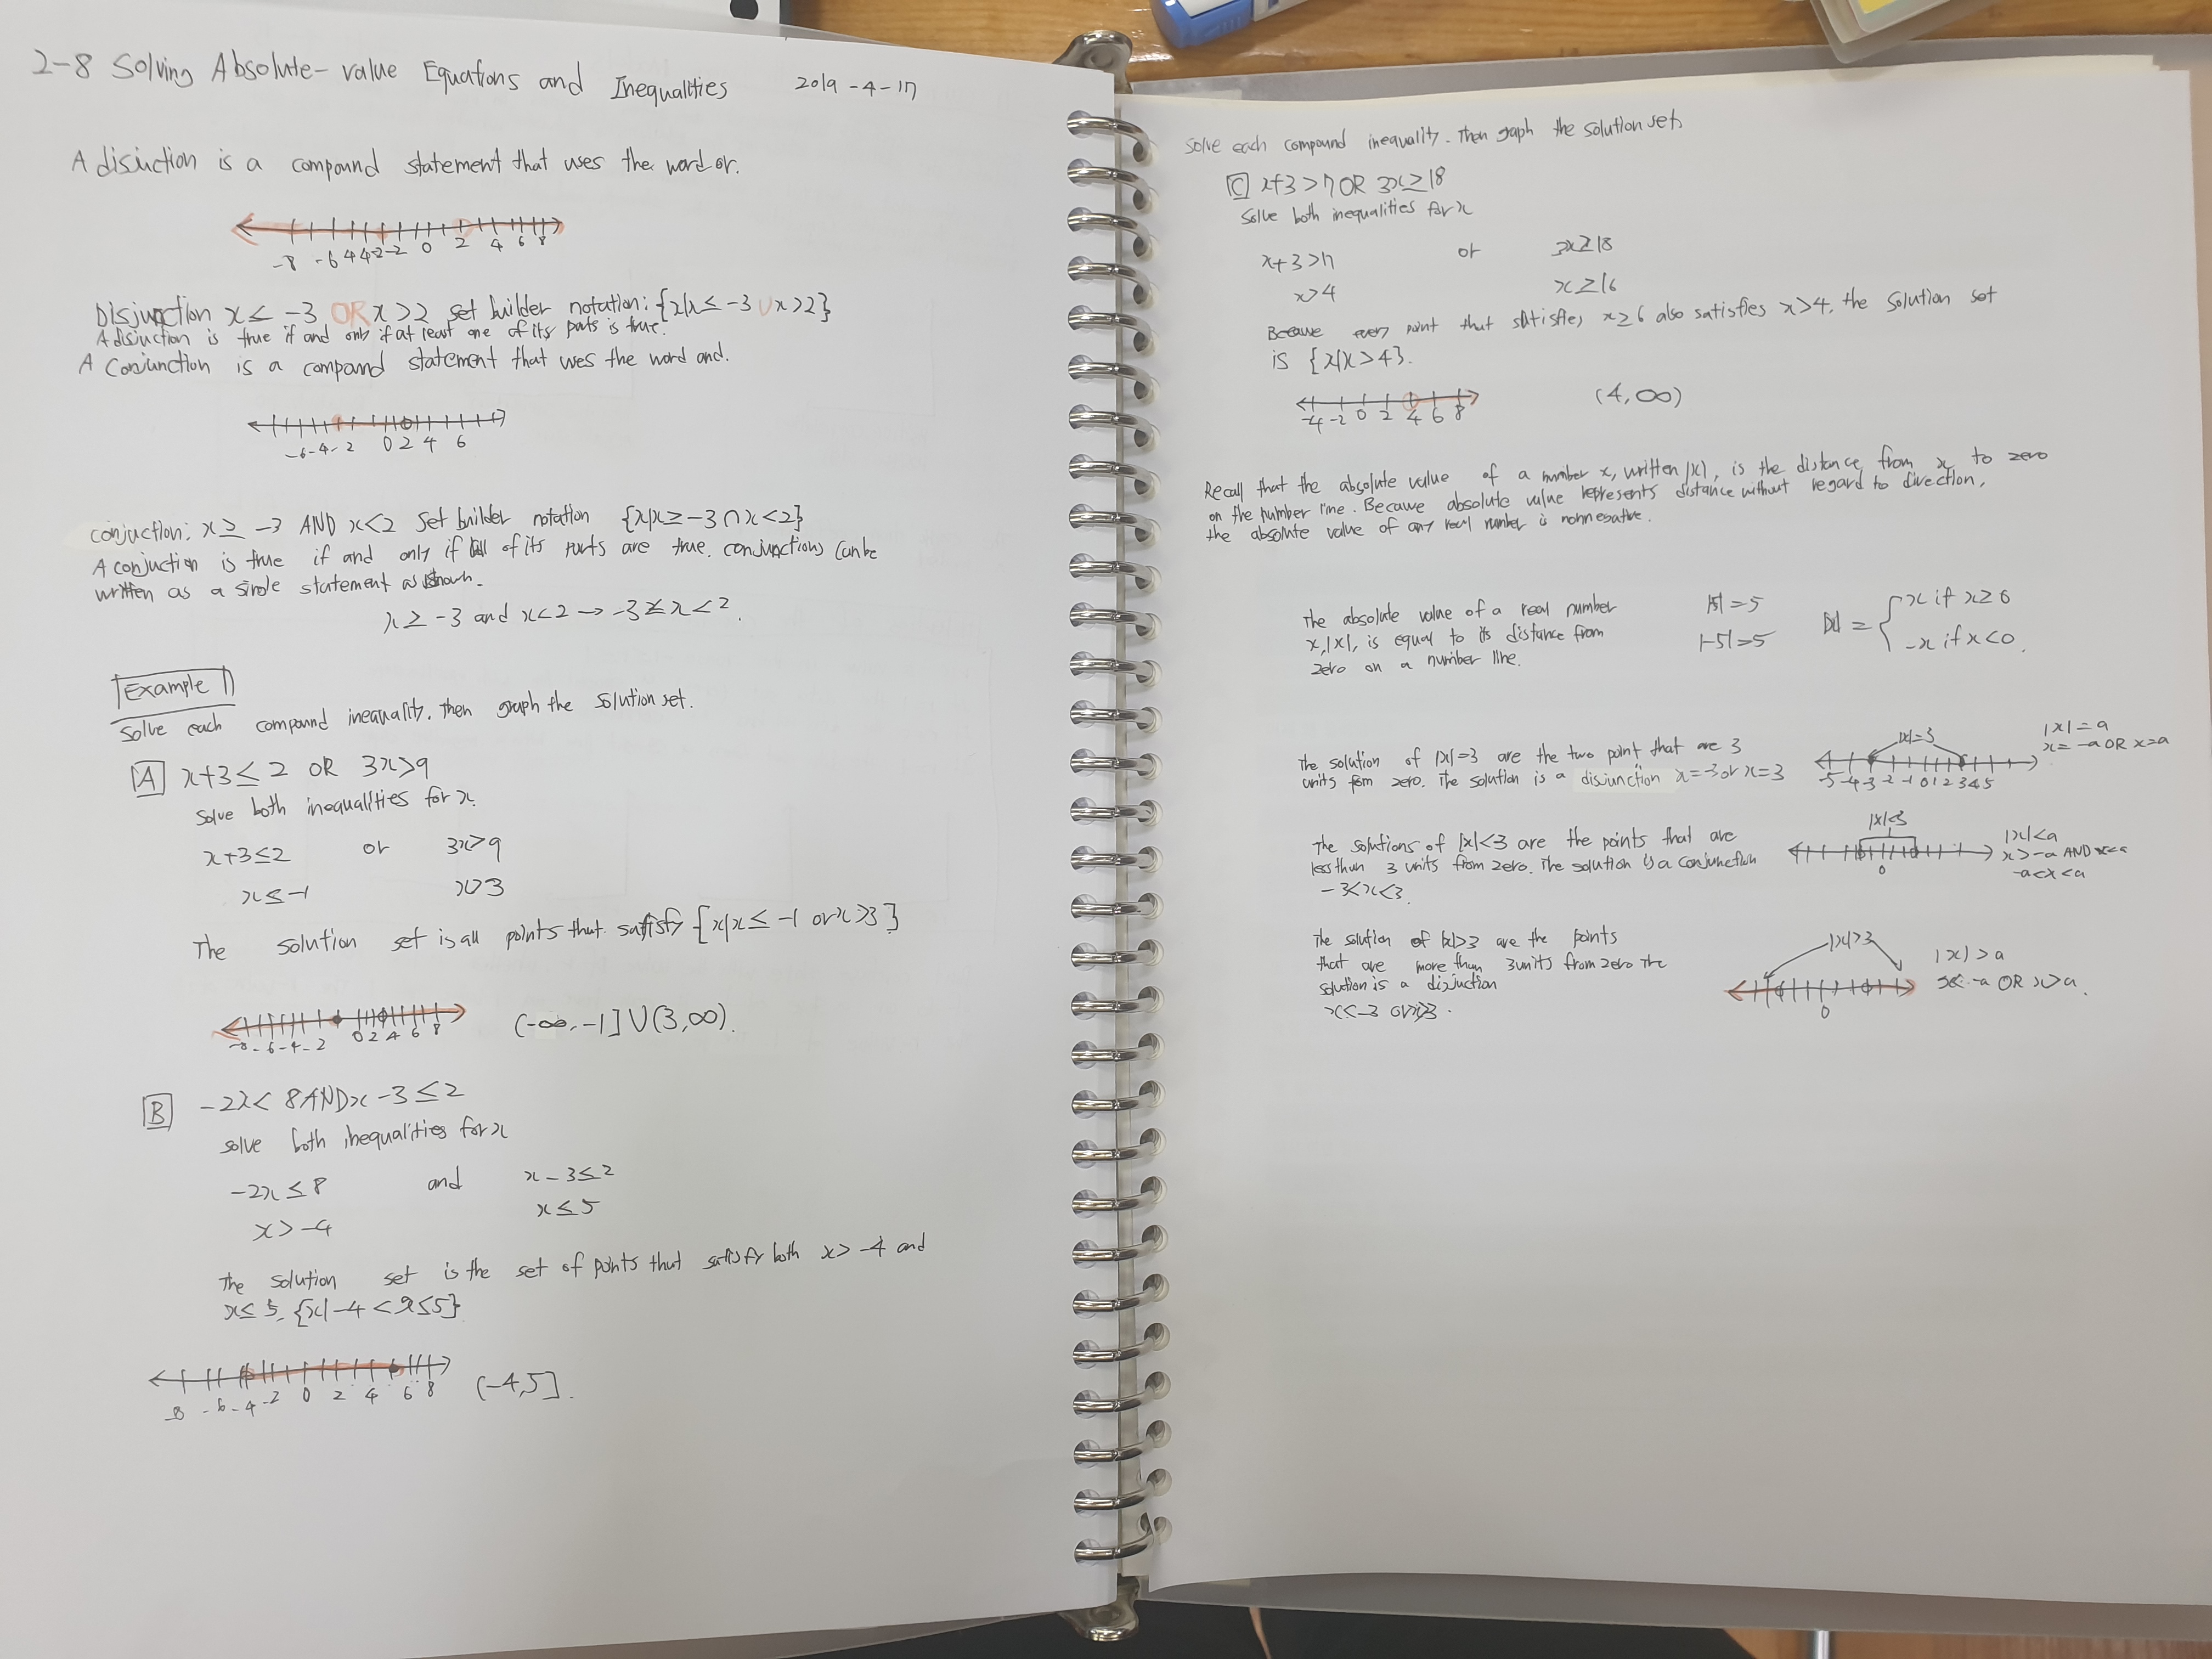 2-8 Solving Absolute-value Equations and Inequalities 2019-4-17
A disjuction is a compound statement that uses the word or.
-8 -6 4 4 -2 -2 0 2 4 6 8
Disjunction x ≤ -3 OR x > 2 set builder notation: {x|x ≤ -3 ∪ x > 2}
A disjuction is true if and only if at least one of its parts is true.
A Conjunction is a compound statement that uses the word and.
-6 -4 -2 0 2 4 6
conjuction: x ≥ -3 AND x < 2 Set builder notation {x|x ≥ -3 ∩ x < 2}
A conjuction is true if and only if all of its parts are true. conjunctions can be
written as a single statement as shown.
x ≥ -3 and x < 2 → -3 ≤ x < 2.
Example 1
Solve each compound inequality. then graph the solution set.
A x+3 ≤ 2 OR 3x > 9
Solve both inequalities for x.
x+3 ≤ 2 or 3x > 9
x ≤ -1 x > 3
The solution set is all points that satisfy {x|x ≤ -1 or x > 3}
-8 -6 -4 -2 0 2 4 6 8 (-∞, -1] ∪ (3, ∞).
B -2x < 8 AND x - 3 ≤ 2
solve both inequalities for x
-2x ≤ 8 and x - 3 ≤ 2
x > -4 x ≤ 5
the solution set is the set of points that satisfy both x > -4 and
x ≤ 5. {x| -4 < x ≤ 5}
-8 -6 -4 -2 0 2 4 6 8 (-4, 5].
Solve each compound inequality. Then graph the solution set.
C x+3 > 7 OR 3x ≥ 18
Solve both inequalities for x
x+3 > 7 or 3x ≥ 18
x > 4 x ≥ 16
Because every point that satisfies x ≥ 6 also satisfies x > 4, the solution set
is {x|x > 4}.
-4 -2 0 2 4 6 8 (4, ∞)
Recall that the absolute value of a number x, written |x|, is the distance from x to zero
on the number line. Because absolute value represents distance without regard to direction,
the absolute value of any real number is nonnegative.
The absolute value of a real number |5| = 5 |x| = { x if x ≥ 0
x, |x|, is equal to its distance from |-5| = 5 -x if x < 0.
zero on a number line.
The solution of |x| = 3 are the two point that are 3 |x| = 3 |x| = a
units from zero. The solution is a disjunction x = -3 or x = 3 x = -a OR x = a
-5 -4 -3 -2 -1 0 1 2 3 4 5
The solutions of |x| < 3 are the points that are |x| < 3 |x| < a
less than 3 units from zero. The solution is a conjunction x > -a AND x < a
-3 < x < 3. 0 -a < x < a
The solution of |x| > 3 are the points |x| > 3 |x| > a
that are more than 3 units from zero The x < -a OR x > a.
solution is a disjuction 0
x < -3 or x > 3.